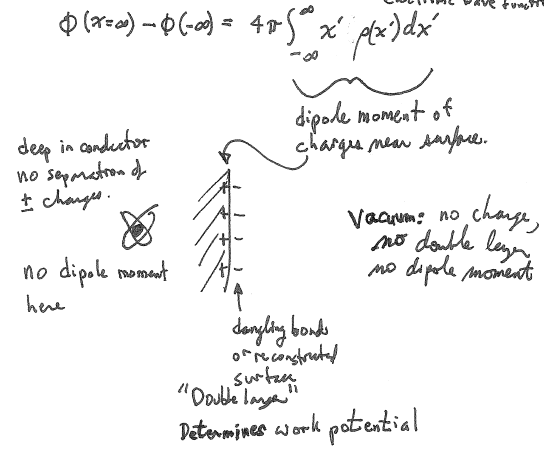 electronic wave functi
Φ(x=∞) − Φ(-∞) = 4π ∫_{-∞}^{∞} x' ρ(x') dx'
dipole moment of
charges near surface.
deep in conductor
no separation of
± charges.
no dipole moment
here
+ −
+ −
+ −
+ −
Vacuum: no charge,
no double layer
no dipole moment
dangling bonds
or reconstructed
surface
"Double layer"
Determines work potential